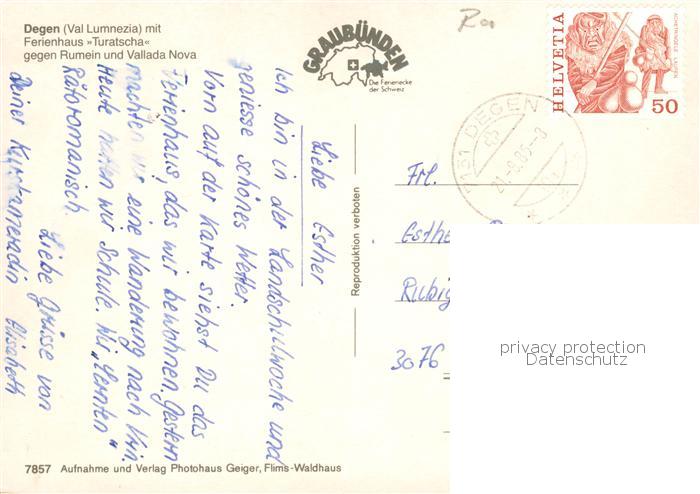 Degen (Val Lumnezia) mit
Ferienhaus »Turatscha«
gegen Rumein und Vallada Nova
GRAUBÜNDEN
Die Ferienecke
der Schweiz
HELVETIA
50
7131 DEGEN
21.-8.85.-8
Liebe Esther
Ich bin in der Landschulwoche und
geniesse schönes Wetter.
Vorn auf der Karte siehst Du das
Ferienhaus, das wir bewohnen. Gestern
machten wir eine Wanderung nach Vrin.
Heute hatten wir Schule. Wir „lernten"
Rätoromanisch.
Liebe Grüsse von
Deiner Kurskameradin Elisabeth
Reproduktion verboten
Frl.
Esthe
Rubig
3076
privacy protection
Datenschutz
7857 Aufnahme und Verlag Photohaus Geiger, Flims-Waldhaus